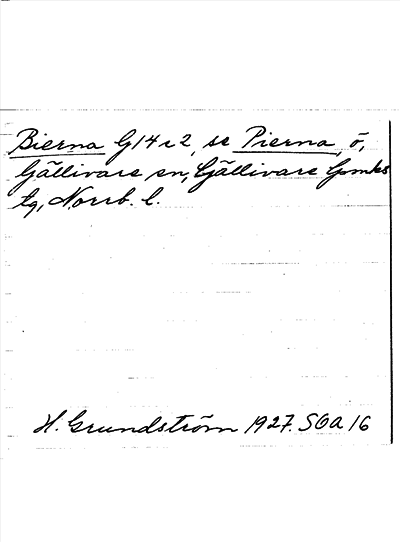 Bierna G14 r 2, se Pierna, ö,
Gällivare sn, Gällivare lpmks
tg, Norrb. l.
H. Grundström 1927. SOA 16